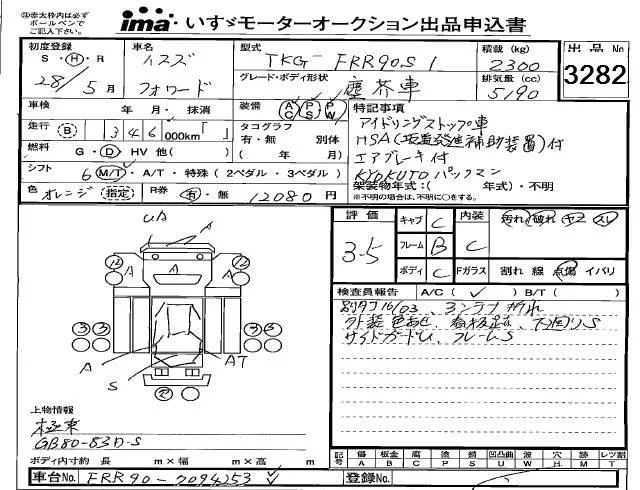 ㊟赤太枠内は必ず
ボールペンで
ご記入下さい。
ima いすゞモーターオークション出品申込書
初度登録 S・H・R 28年 5月
車名 イスズ フォワード
型式 TKG-FRR90S1
積載 (kg) 2300
出品No. 3282
グレード・ボディ形状 塵芥車
排気量 (cc) 5190
車検 年・月・抹消
装備 AC PS PW
特記事項
走行 B 346,000km「 」
タコグラフ 有・無 別体 ( 年 月)
アイドリングストップ車
HSA(坂道発進補助装置)付
燃料 G・D・HV 他( )
エアブレーキ付
シフト 6 M/T・A/T・特殊(2ペダル・3ペダル)
KYOKUTO パックマン
架装物年式:( 年式)・不明
※不明の場合は、不明に○をする。
色 オレンジ 指定
R券 有・無 12080円
評価 3.5
キャブ C 内装 汚れ・破れ・ヤニ・スレ
フレーム B C
ボディ C Fガラス 割れ 線 点傷 イバリ
UA
A
A
A A
12 12
3 3 3 3
A S AT
12
検査員報告 A/C( ✓ ) B/T( )
別タコ16/03、
外装色あせ、下回りS
サイドガードU、フレームS
上物情報
極東
GB80-83D-S
ボディ内寸約 長 m×幅 m×高 m
記号 傷 板金 腐 塗 錆 凹凸曲 波 穴 跡 レツ割
A B C P S U W H M T
車台No. FRR90-7094253
登録No.